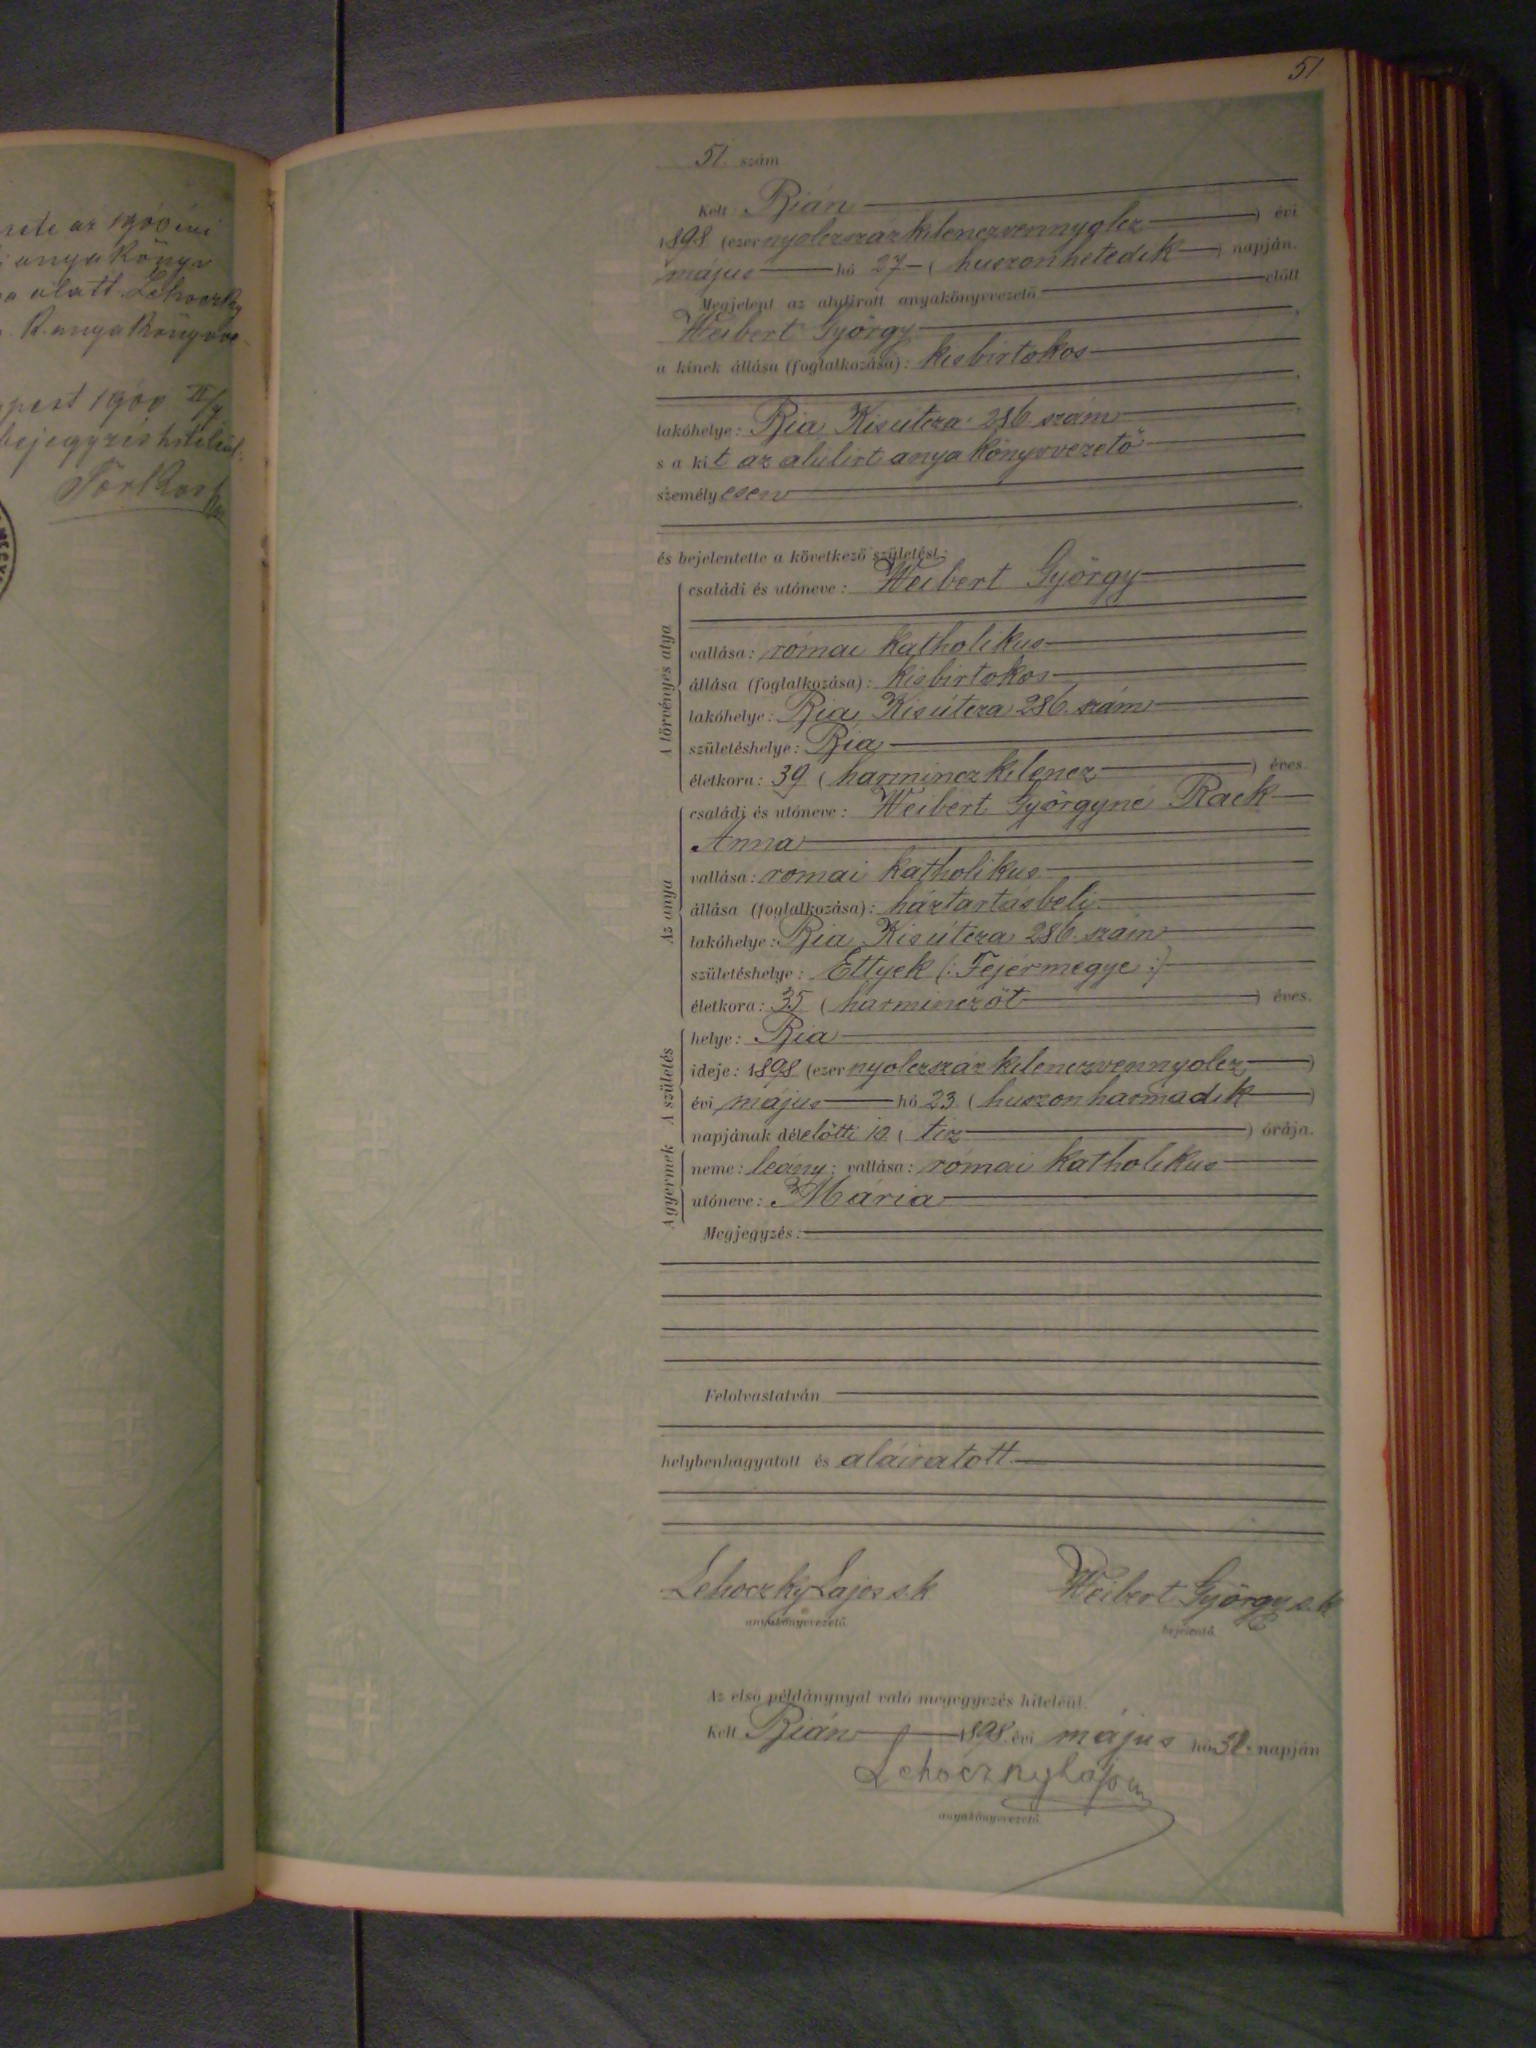 rete az 1900 évi
anyakönyv
alatt Lehoczky
R. anyakönyvve-
pest 1900 IV/7
bejegyzés hiteléül.
51
51. szám
Kelt Bián
1898 (ezernyolczszázkilenczvennyolcz) évi
május hó 27 (huszonhetedik) napján.
Megjelent az alulirott anyakönyvvezető előtt
Weibert György
a kinek állása (foglalkozása): kisbirtokos
lakóhelye: Bia Kisútcza 286. szám
s a kit az alulirt anyakönyvvezető
személyesen
és bejelentette a következő születést:
A törvényes atya
családi és utóneve: Weibert György
vallása: római katholikus
állása (foglalkozása): kisbirtokos
lakóhelye: Bia, Kisútcza 286. szám
születéshelye: Bia
életkora: 39 (harminczkilencz) éves.
Az anya
családi és utóneve: Weibert Györgyné Rack
Anna
vallása: római katholikus
állása (foglalkozása): háztartásbeli
lakóhelye: Bia, Kisútcza 286. szám
születéshelye: Ettyek (: Fejérmegye :)
életkora: 35 (harminczöt) éves.
A születés
helye: Bia
ideje: 1898 (ezernyolczszázkilenczvennyolcz)
évi május hó 23 (huszonharmadik)
napjának délelőtti 10 (tiz) órája.
A gyermek
neme: leány; vallása: római katholikus
utóneve: Mária
Megjegyzés:
Felolvastatván
helybenhagyatott és aláiratott.
Lehoczky Lajos s.k Weibert György s.k
anyakönyvvezető bejelentő
Az első példánynyal való megegyezés hiteléül.
Kelt Bián 1898. évi május hó napján
Lehoczky Lajos
anyakönyvvezető